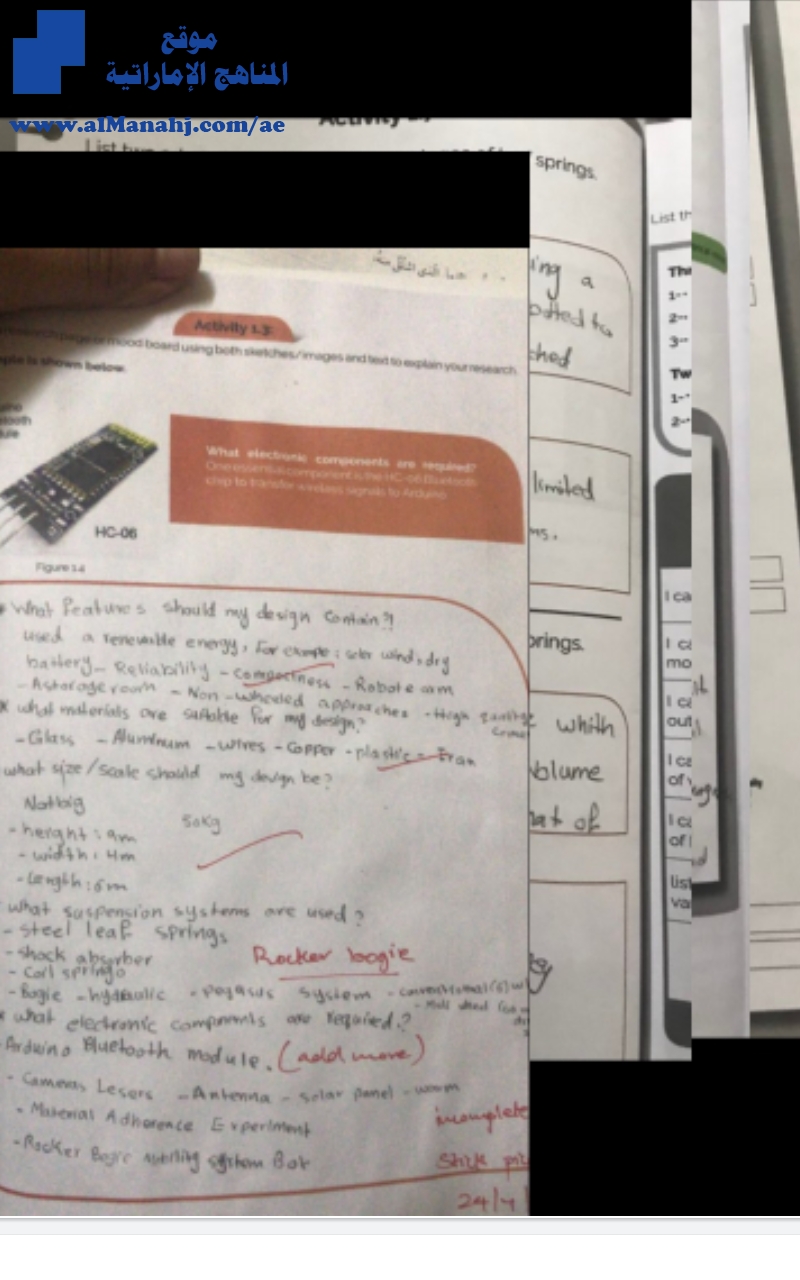 موقع
المناهج الإماراتية
www.alManahj.com/ae
Activity
List two
springs.
ing a
otted to
ched
limited
ms.
prings.
whith
Volume
hat of
List th
The
1--
2--
3--
Tw
1--
2--
I ca
I ca
mo
I ca
out
I ca
of
I ca
of
list
va
Activity 1.3:
mood board using both sketches/images and text to explain your research.
ple is shown below.
HC-06
Figure 1.4
What electronic components are required?
One essential component is the HC-06 Bluetooth
chip to transfer wireless signals to Arduino
* What Features should my design contain?!
used a renewable energy, For example: soler wind, dry
battery - Reliability - Compactness - Robote arm
- Astorage room - Non-wheeled approaches - High
* what materials are suitable for my design?
- Glass - Aluminum - wires - Copper - plastic - Iran
what size/scale should my design be?
Not big
50kg
- height: 9m
- width: 4m
- Length: 5m
what suspension systems are used?
- steel leaf springs
- shock absorber
Rocker bogie
- Coil springs
- Bogie - hydraulic - pegasus system
* what electronic components are required?
- Arduino Bluetooth module. (add more)
- Cameras Lesers - Antenna - solar panel - worm
- Material Adherence Experiment
incomplete
- Rocker Bogie mobility system Bot
Stick pic
24/4